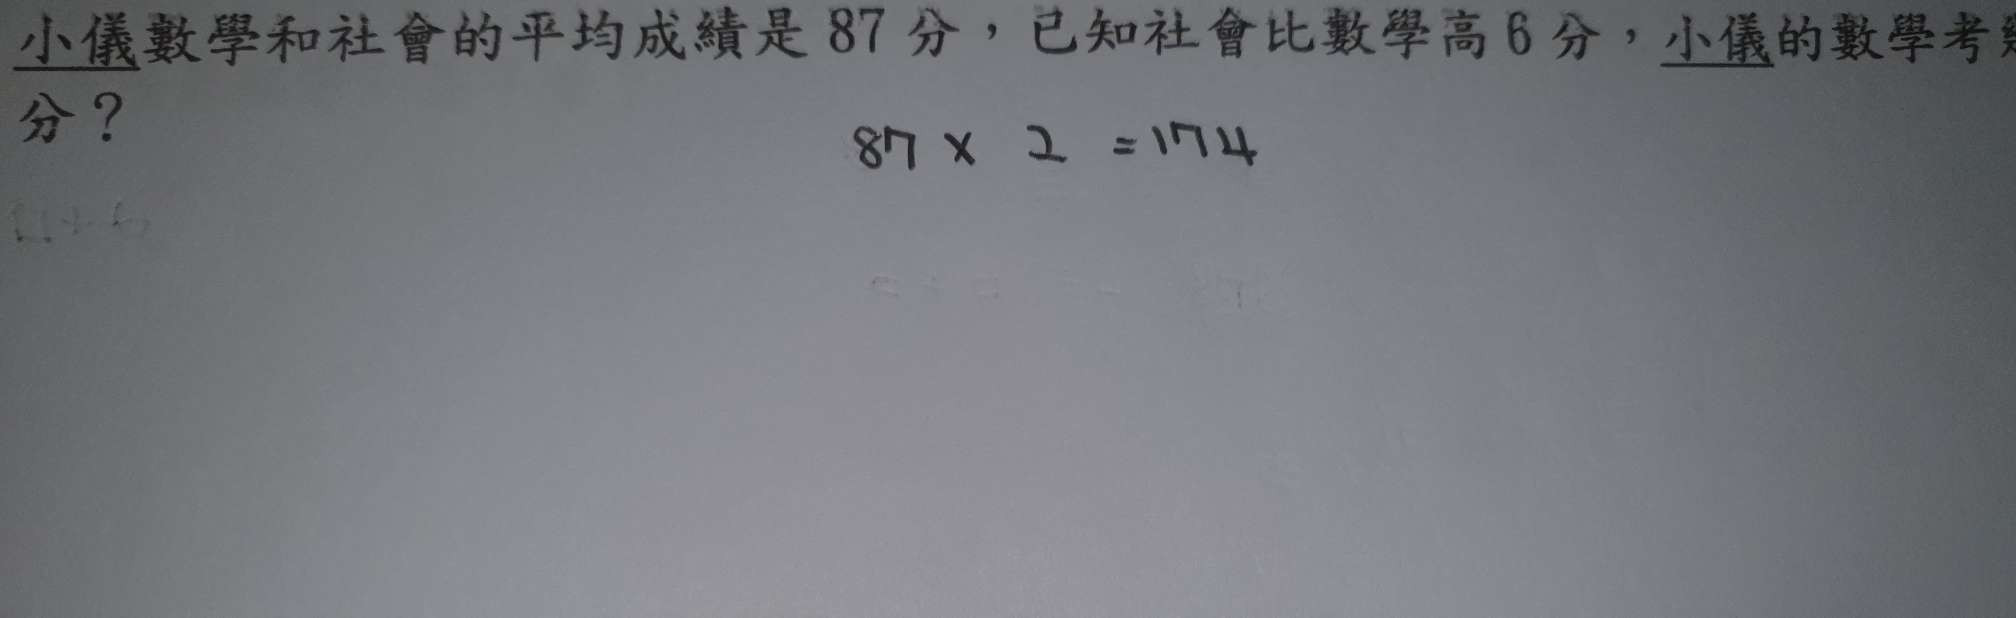 小儀數學和社會的平均成績是 87 分，已知社會比數學高 6 分，小儀的數學考
分？
87 × 2 = 174